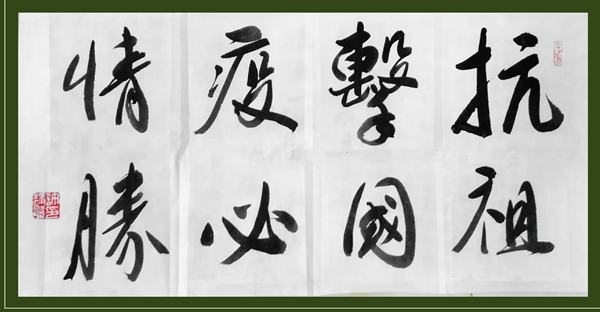 抗擊疫情
祖國必勝